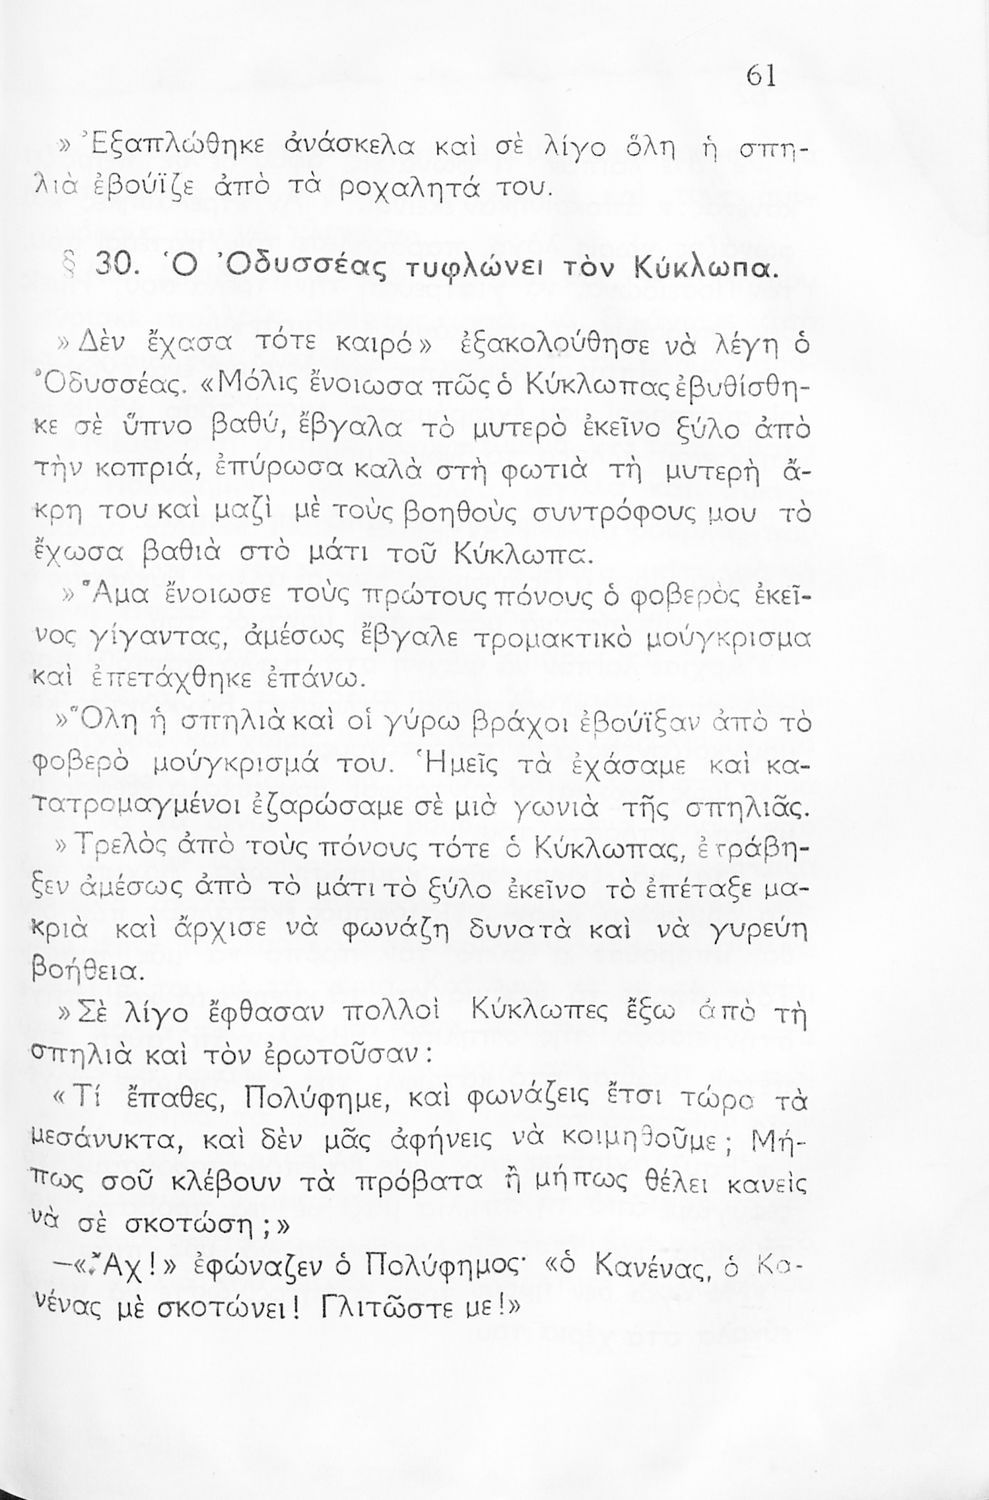 61
» Ἐξαπλώθηκε ἀνάσκελα καὶ σὲ λίγο ὅλη ἡ σπη-
λιὰ ἐβούϊζε ἀπὸ τὰ ροχαλητά του.
§ 30. Ὁ Ὀδυσσέας τυφλώνει τὸν Κύκλωπα.
» Δὲν ἔχασα τότε καιρό» ἐξακολούθησε νὰ λέγη ὁ
Ὀδυσσέας. «Μόλις ἔνοιωσα πῶς ὁ Κύκλωπας ἐβυθίσθη-
κε σὲ ὕπνο βαθύ, ἔβγαλα τὸ μυτερὸ ἐκεῖνο ξύλο ἀπὸ
τὴν κοπριά, ἐπύρωσα καλὰ στὴ φωτιὰ τὴ μυτερὴ ἄ-
κρη του καὶ μαζὶ μὲ τοὺς βοηθοὺς συντρόφους μου τὸ
ἔχωσα βαθιὰ στὸ μάτι τοῦ Κύκλωπα.
» Ἅμα ἔνοιωσε τοὺς πρώτους πόνους ὁ φοβερὸς ἐκεῖ-
νος γίγαντας, ἀμέσως ἔβγαλε τρομακτικὸ μούγκρισμα
καὶ ἐπετάχθηκε ἐπάνω.
» Ὅλη ἡ σπηλιὰ καὶ οἱ γύρω βράχοι ἐβούϊξαν ἀπὸ τὸ
φοβερὸ μούγκρισμά του. Ἡμεῖς τὰ ἐχάσαμε καὶ κα-
τατρομαγμένοι ἐζαρώσαμε σὲ μιὰ γωνιὰ τῆς σπηλιᾶς.
» Τρελὸς ἀπὸ τοὺς πόνους τότε ὁ Κύκλωπας, ἐτράβη-
ξεν ἀμέσως ἀπὸ τὸ μάτι τὸ ξύλο ἐκεῖνο τὸ ἐπέταξε μα-
κριὰ καὶ ἄρχισε νὰ φωνάζη δυνατὰ καὶ νὰ γυρεύη
βοήθεια.
» Σὲ λίγο ἔφθασαν πολλοὶ Κύκλωπες ἔξω ἀπὸ τὴ
σπηλιὰ καὶ τὸν ἐρωτοῦσαν :
« Τί ἔπαθες, Πολύφημε, καὶ φωνάζεις ἔτσι τώρα τὰ
μεσάνυκτα, καὶ δὲν μᾶς ἀφήνεις νὰ κοιμηθοῦμε ; Μή-
πως σοῦ κλέβουν τὰ πρόβατα ἢ μήπως θέλει κανεὶς
νὰ σὲ σκοτώση ; »
—«Ἄχ!» ἐφώναζεν ὁ Πολύφημος· «ὁ Κανένας, ὁ Κα-
νένας μὲ σκοτώνει! Γλιτῶστε με!»